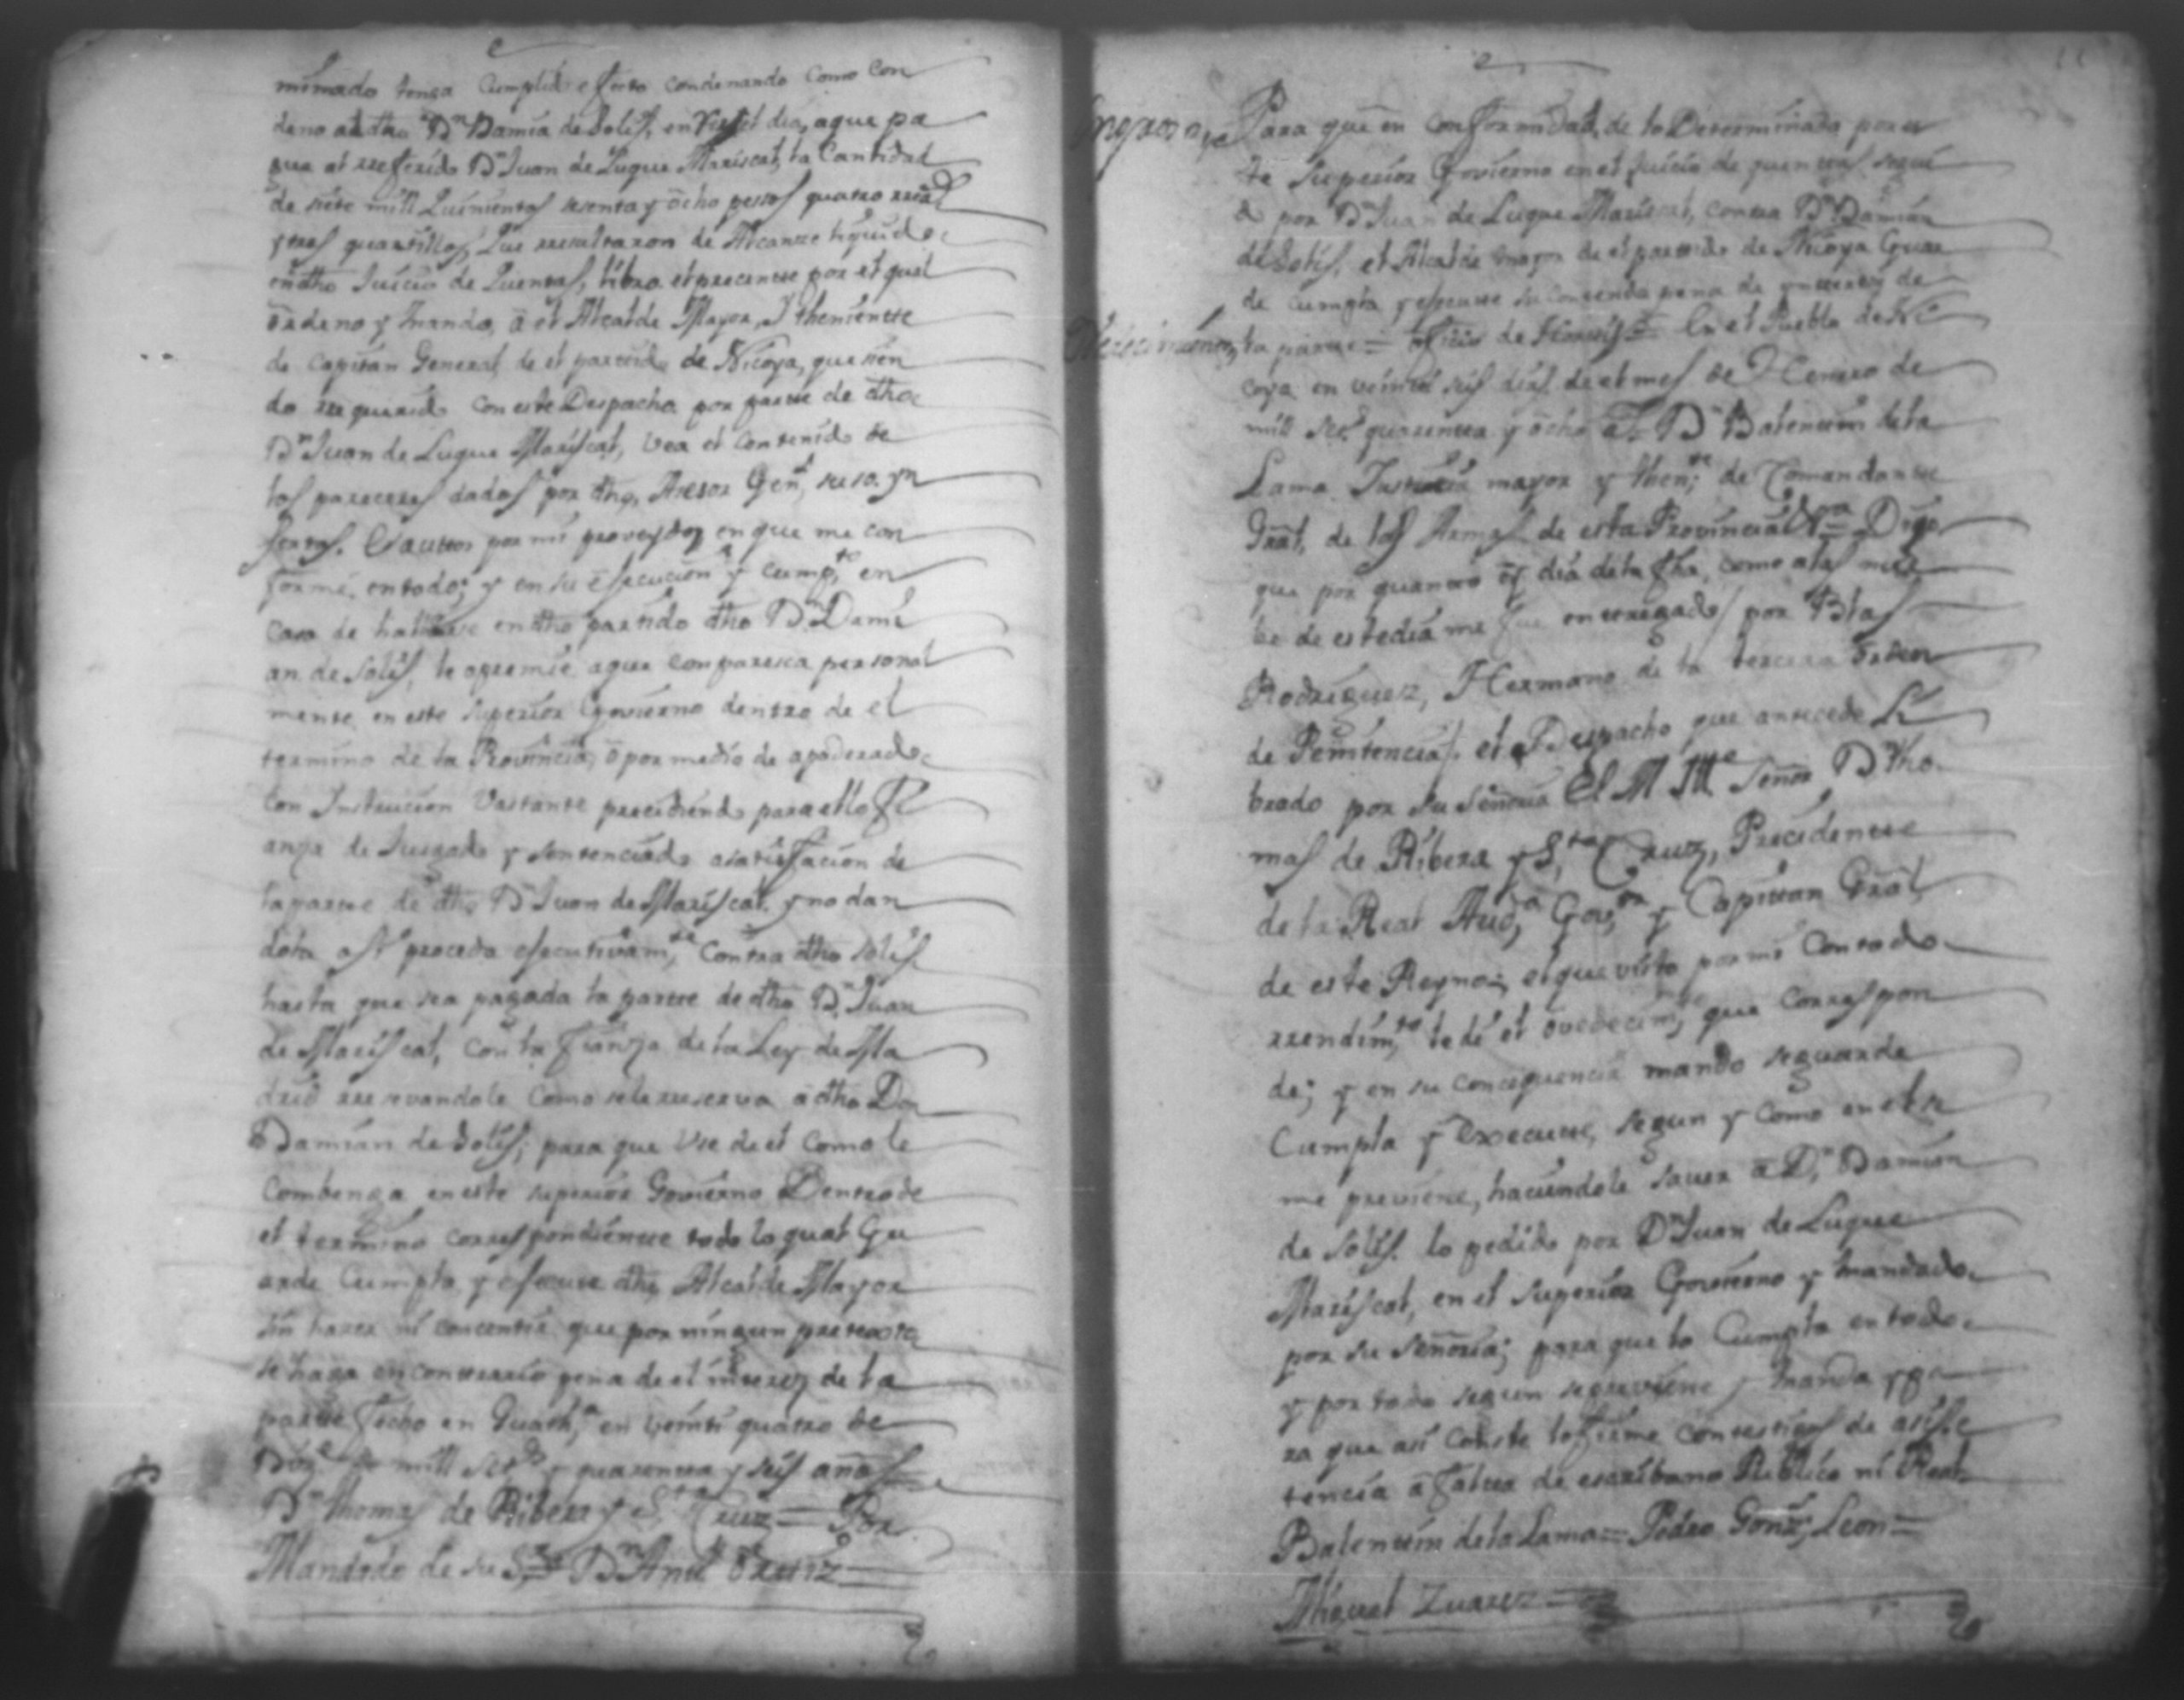 minado tenga Cumplido efecto condenando como con
deno al dho Dn Damian de Solis, en Vista dia, aque pa
gue al rreferido Dn Juan de Luque Mariscal, la Cantidad
de siete mill Quinientos sesenta y ocho pessos quatro rreas
y tres quartillos, Que rresultaron de Alcanze liquido
en dho Juicio de Quentas, libro el precente por el qual
ordeno y mando, a el Alcalde Mayor, y theniente
de Capitan General, de el partido de Nicoya, que sien
do rrequerido con este Despacho por parte de dho
Dn Juan de Luque Mariscal, vea el contenido de
los pareceres dados por dho Asesor Genl, suso yn
sertos. Y autos por mi proveydos en que me con
forme, en todo; y en su execucion y cumpto en
caso de hallarse en dho partido dho Dn Dami
an de Solis, le apremie aque comparesca personal
mente en este Superior Govierno dentro de el
termino de la Provincia, o por medio de apoderado
con Instruccion Vastante precediendo para ello fi
anza de Jusgado y sentenciado asatisfacion de
la parte de dho Dn Juan de Mariscal, y no dan
dola assi proceda executivamte, contra dho Solis
hasta que sea pagada la parte de dho Dn Juan
de Mariscal, con la fianza de la Ley de Ma
drid rresevandole como se le rreserva a dho Don
Damian de Solis; para que Vse de el como le
Combenga en este superior Govierno Dentro de
el termino correspondiente todo lo qual Gu
arde Cumpla y execute dho Alcalde Mayor
sin hazer ni concentir que por ningun pretexto
se haga en contrario pena de el interez de la
parte fecho en Guatha, en veinti quatro de
Dize de mill setos y quarenta y seis años
Dn thomas de Ribera y Sta Cruz = Por
Mandado de su Sa Dn Anto Ortiz =
Para que en conformidad, de lo Determinado por es
te Superior Govierno en el Juicio de quentas segui
do por Dn Juan de Luque Mariscal, contra Dn Damian
de Solis, el Alcalde mayor de el partido de Nicoya Guar
de cumpla y execute su contenido pena de ynterez de
la parte = En el Pueblo de Ni
coya en veinti seis dias de el mes de Henero de
mill setos quarenta y ocho as Dn Balentin de la
Lama Justicia mayor y thente de Comandante
Gral, de las Armas de esta Provincia Digo
que por quanto oy dia de la fha, como a las nue
be de este dia me fue entregado por Blas
Rodriguez, Hermano de la tercera orden
de Penitencia, el Despacho que antecede Li
brado por su señoria El M Ille Señor Dn tho
mas de Ribera y Sta Cruz, Precidente
de la Real Auda, Govor y Capitan Gral
de este Reyno; el que visto por mi con todo
rrendimto le dé el ovedecimto que correspon
de; y en su consequencia mando seguarde
Cumpla y Execute, segun y como en el se
me previene, haciendole saver a Dn Damian
de Solis. lo pedido por Dn Juan de Luque
Mariscal, en el Superior Govierno y mandado
por su señoria; para que lo Cumpla en todo
y por todo segun se previene y manda y pa
ra que asi conste lo firme con testigos de asis
tencia a falta de escribano Publico ni Real
Balentin de la Lama = Pedro Gonz, Leon =
Miguel Zuarez =